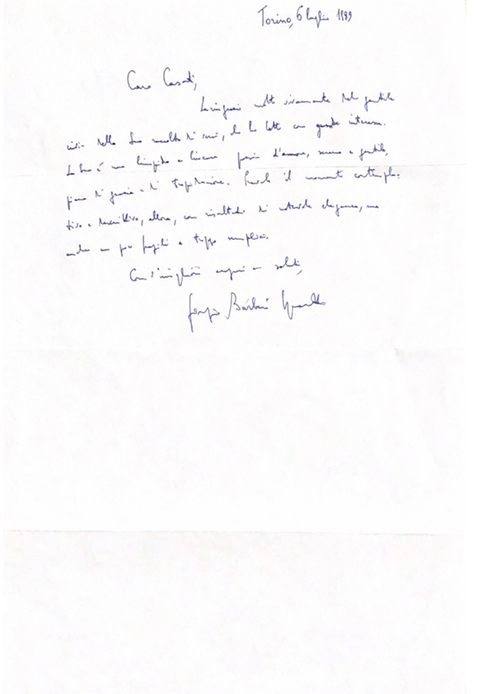 Torino, 6 luglio 1989
Caro Casati,
La ringrazio molto vivamente del gentile
invio della Sua raccolta di versi, che ho letto con grande interesse.
La Sua è una limpida e poesia d'amore, serena e gentile,
piena di grazia e di . Prevale il momento contempla-
tivo e descrittivo, allora, con risultati di notevole eleganza, ma
anche un po' fragili e troppo semplici.
Con i migliori auguri e saluti,
Giorgio Bárberi Squarotti